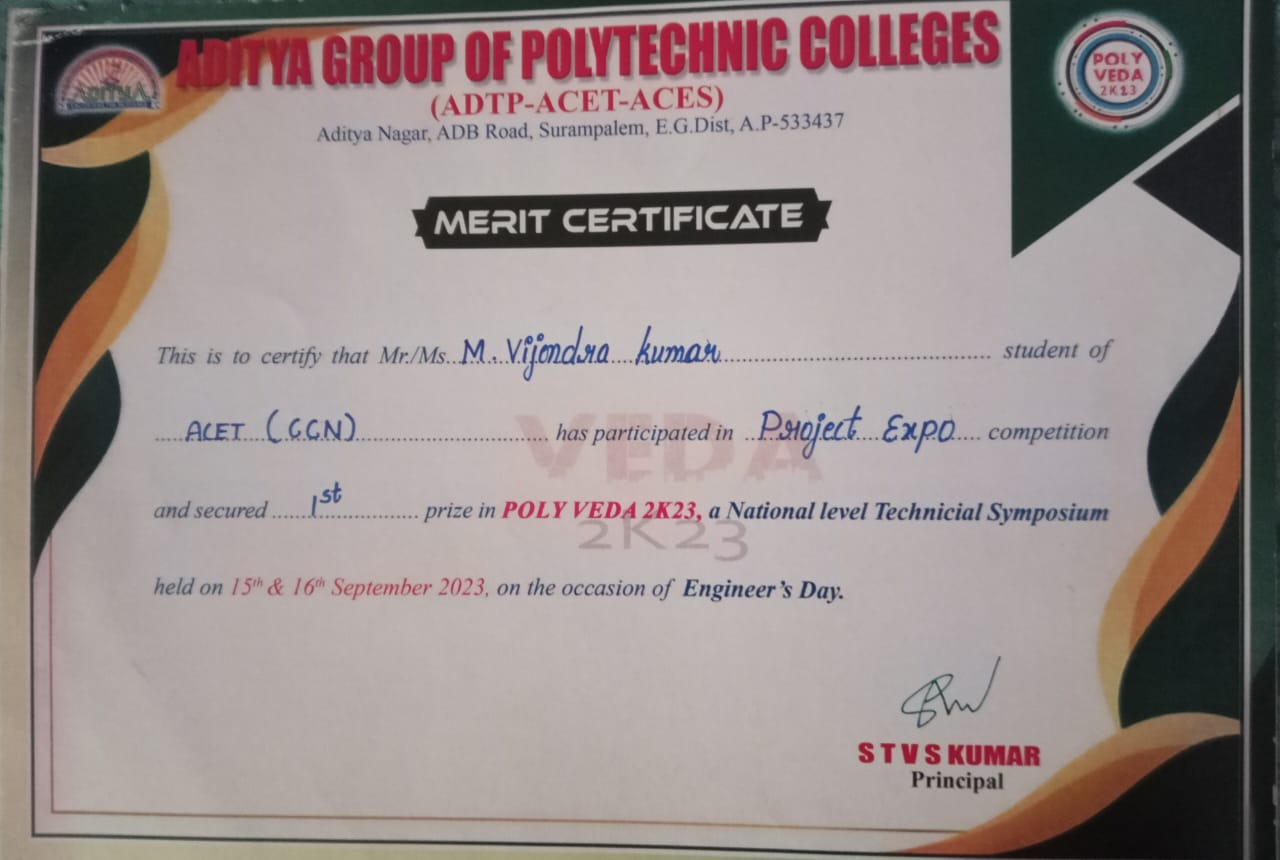 ADITYA
ADITYA GROUP OF POLYTECHNIC COLLEGES
POLY
VEDA
2K23
(ADTP-ACET-ACES)
Aditya Nagar, ADB Road, Surampalem, E.G.Dist, A.P-533437
MERIT CERTIFICATE
This is to certify that Mr./Ms. M. Vijendra kumar student of
ACET (CCN) has participated in Project Expo competition
VEDA
and secured 1st prize in POLY VEDA 2K23, a National level Technicial Symposium
2K23
held on 15th & 16th September 2023, on the occasion of Engineer's Day.
S T V S KUMAR
Principal